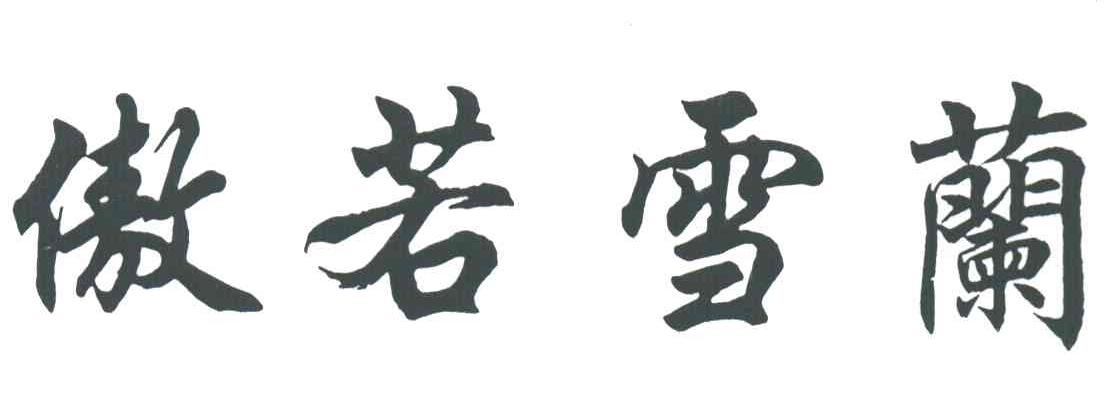 傲若雪蘭